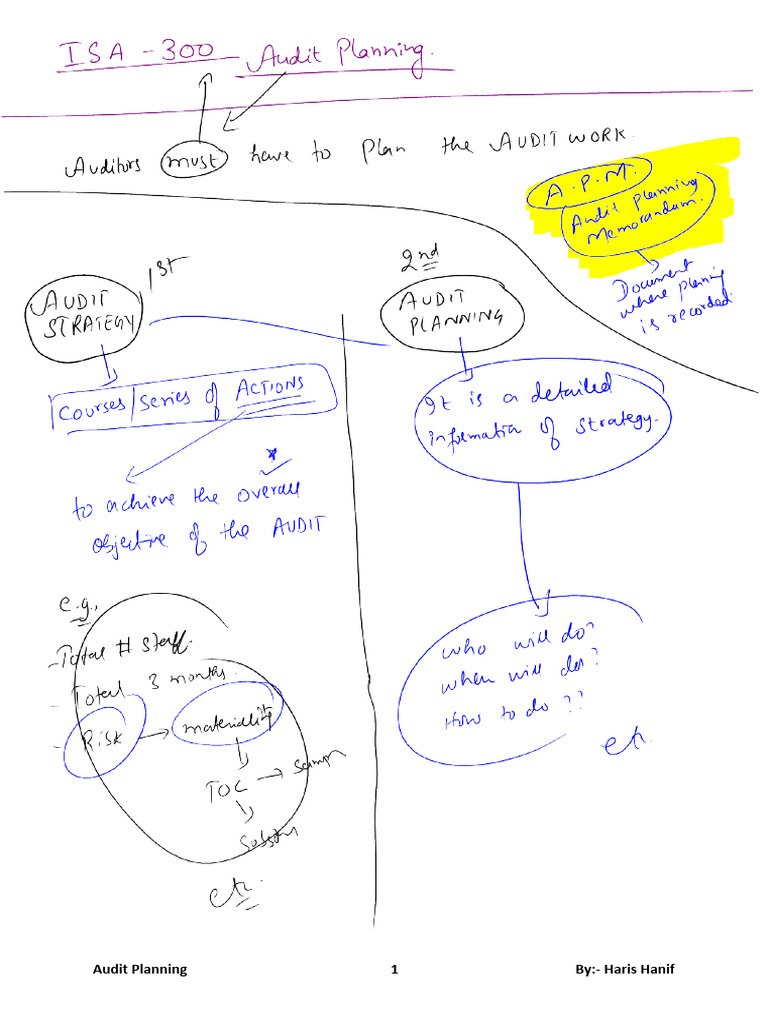 ISA - 300 Audit Planning.
Auditors must have to plan the AUDIT WORK.
A.P.M.
Audit Planning
Memorandum.
Document
where planning
is recorded.
1st
AUDIT
STRATEGY
Courses/Series of ACTIONS
to achieve the overall
objective of the AUDIT
e.g.,
- Total # staff.
- Total 3 months.
- Risk → materiality
TOC → Samp
etc.
2nd
AUDIT
PLANNING
It is a detailed
information of strategy.
who will do?
when will do?
How to do??
etc.
Audit Planning 1 By:- Haris Hanif